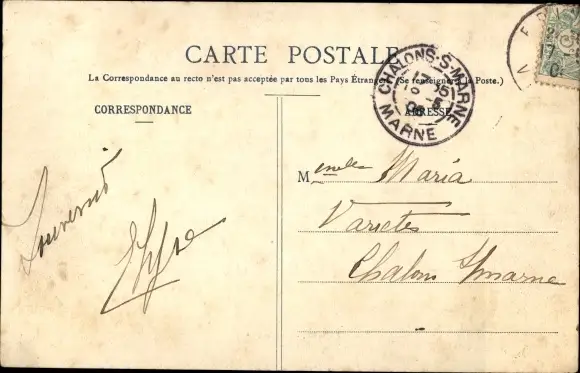 CARTE POSTALE
La Correspondance au recto n'est pas acceptée par tous les Pays Étrangers (Se renseigner à la Poste.)
CORRESPONDANCE
ADRESSE
CHALONS-S-MARNE
MARNE
Souvenir
M elle Maria
Varietes
Chalons s/marne